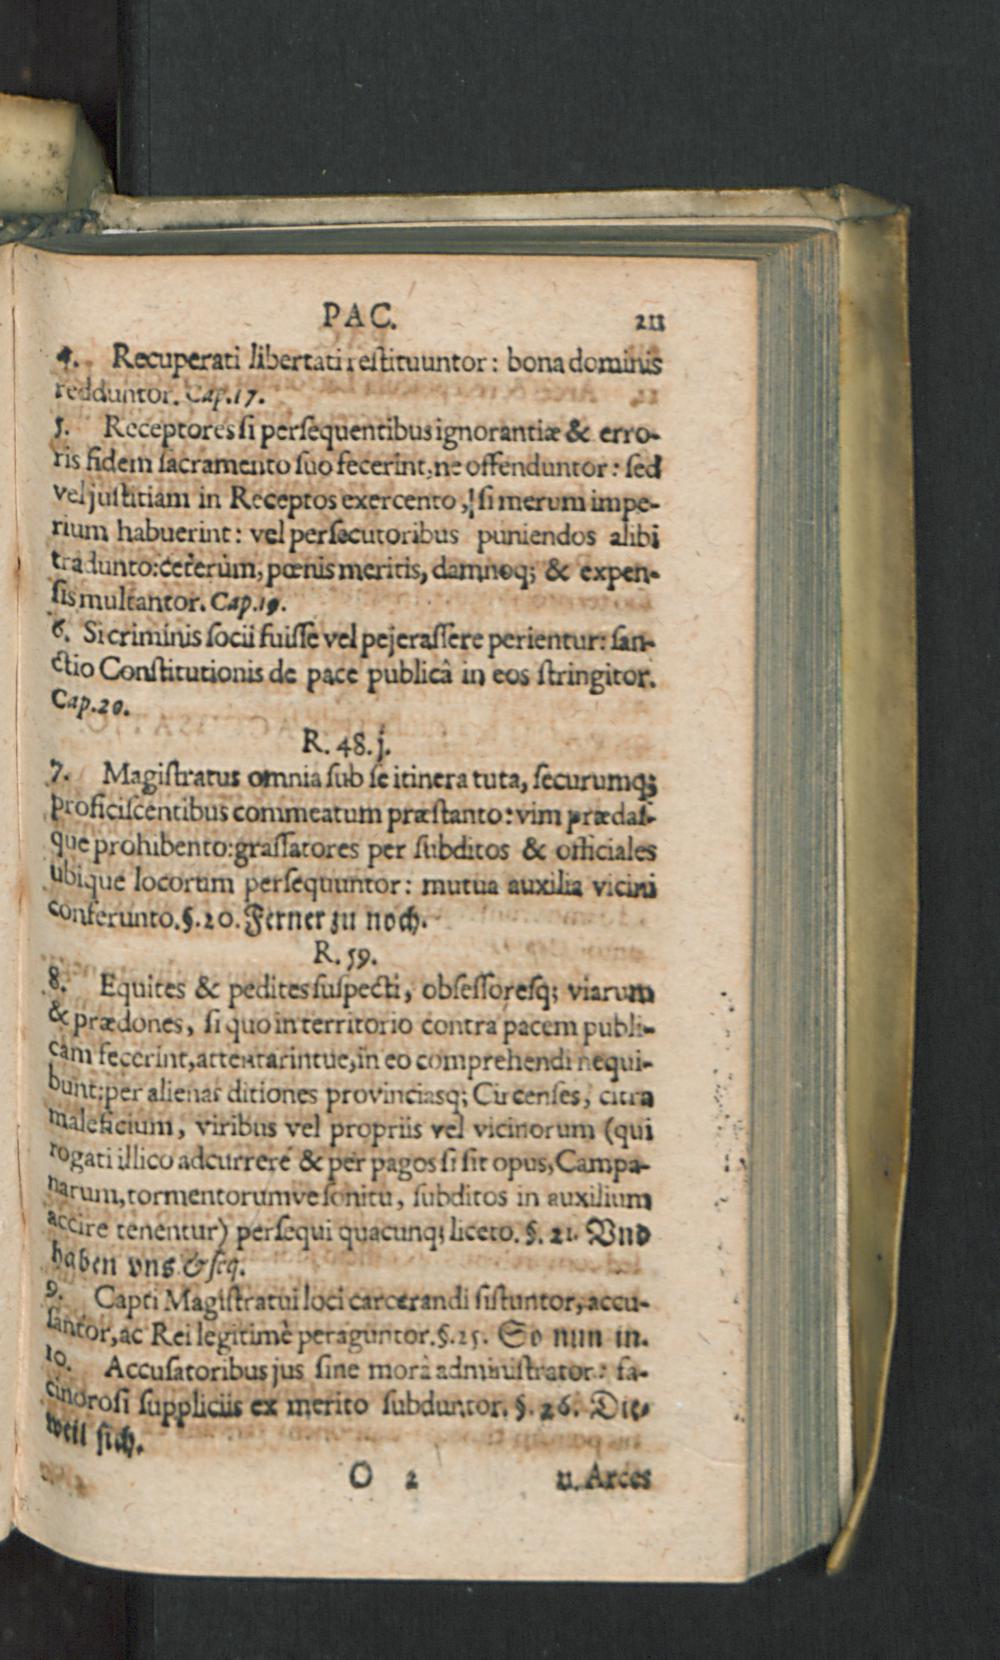 PAC. 211
4. Recuperati libertati restituuntor: bona dominis
redduntor. Cap.17.
5. Receptores si persequentibus ignorantiæ & erro-
ris fidem sacramento suo fecerint, ne offenduntor: sed
vel justitiam in Receptos exercento, si merum impe-
rium habuerint: vel persecutoribus puniendos alibi
tradunto: ceterùm, pœnis meritis, damnoq; & expen-
sis multantor. Cap.19.
6. Si criminis socii fuisse vel pejerasse reperientur: san-
ctio Constitutionis de pace publicâ in eos stringitor.
Cap.20.
R. 48. j.
7. Magistratus omnia sub se itinera tuta, securumq;
proficiscentibus commeatum præstanto: vim prædas-
que prohibento: grassatores per subditos & officiales
ubique locorum persequuntor: mutua auxilia vicini
conferunto. §.20. Ferner zu noch.
R. 59.
8. Equites & pedites suspecti, obsessoresq; viarum
& prædones, si quo in territorio contra pacem publi-
cam fecerint, attentarintue, in eo comprehendi nequi-
bunt: per alienas ditiones provinciasq; Circenses, citra
maleficium, viribus vel propriis vel vicinorum (qui
rogati illico adcurrere & per pagos si sit opus, Campa-
narum, tormentorumve sonitu, subditos in auxilium
accire tenentur) persequi quacunq; liceto. §. 21. Vnd
haben vns & seq.
9. Capti Magistratui loci carcerandi sistuntor, accu-
santor, ac Rei legitimè peraguntor. §.25. So nun in.
10. Accusatoribus jus sine morâ administrator: fa-
cinorosi suppliciis ex merito subduntor. §. 26. Die-
weil sich.
O 2 11. Arces